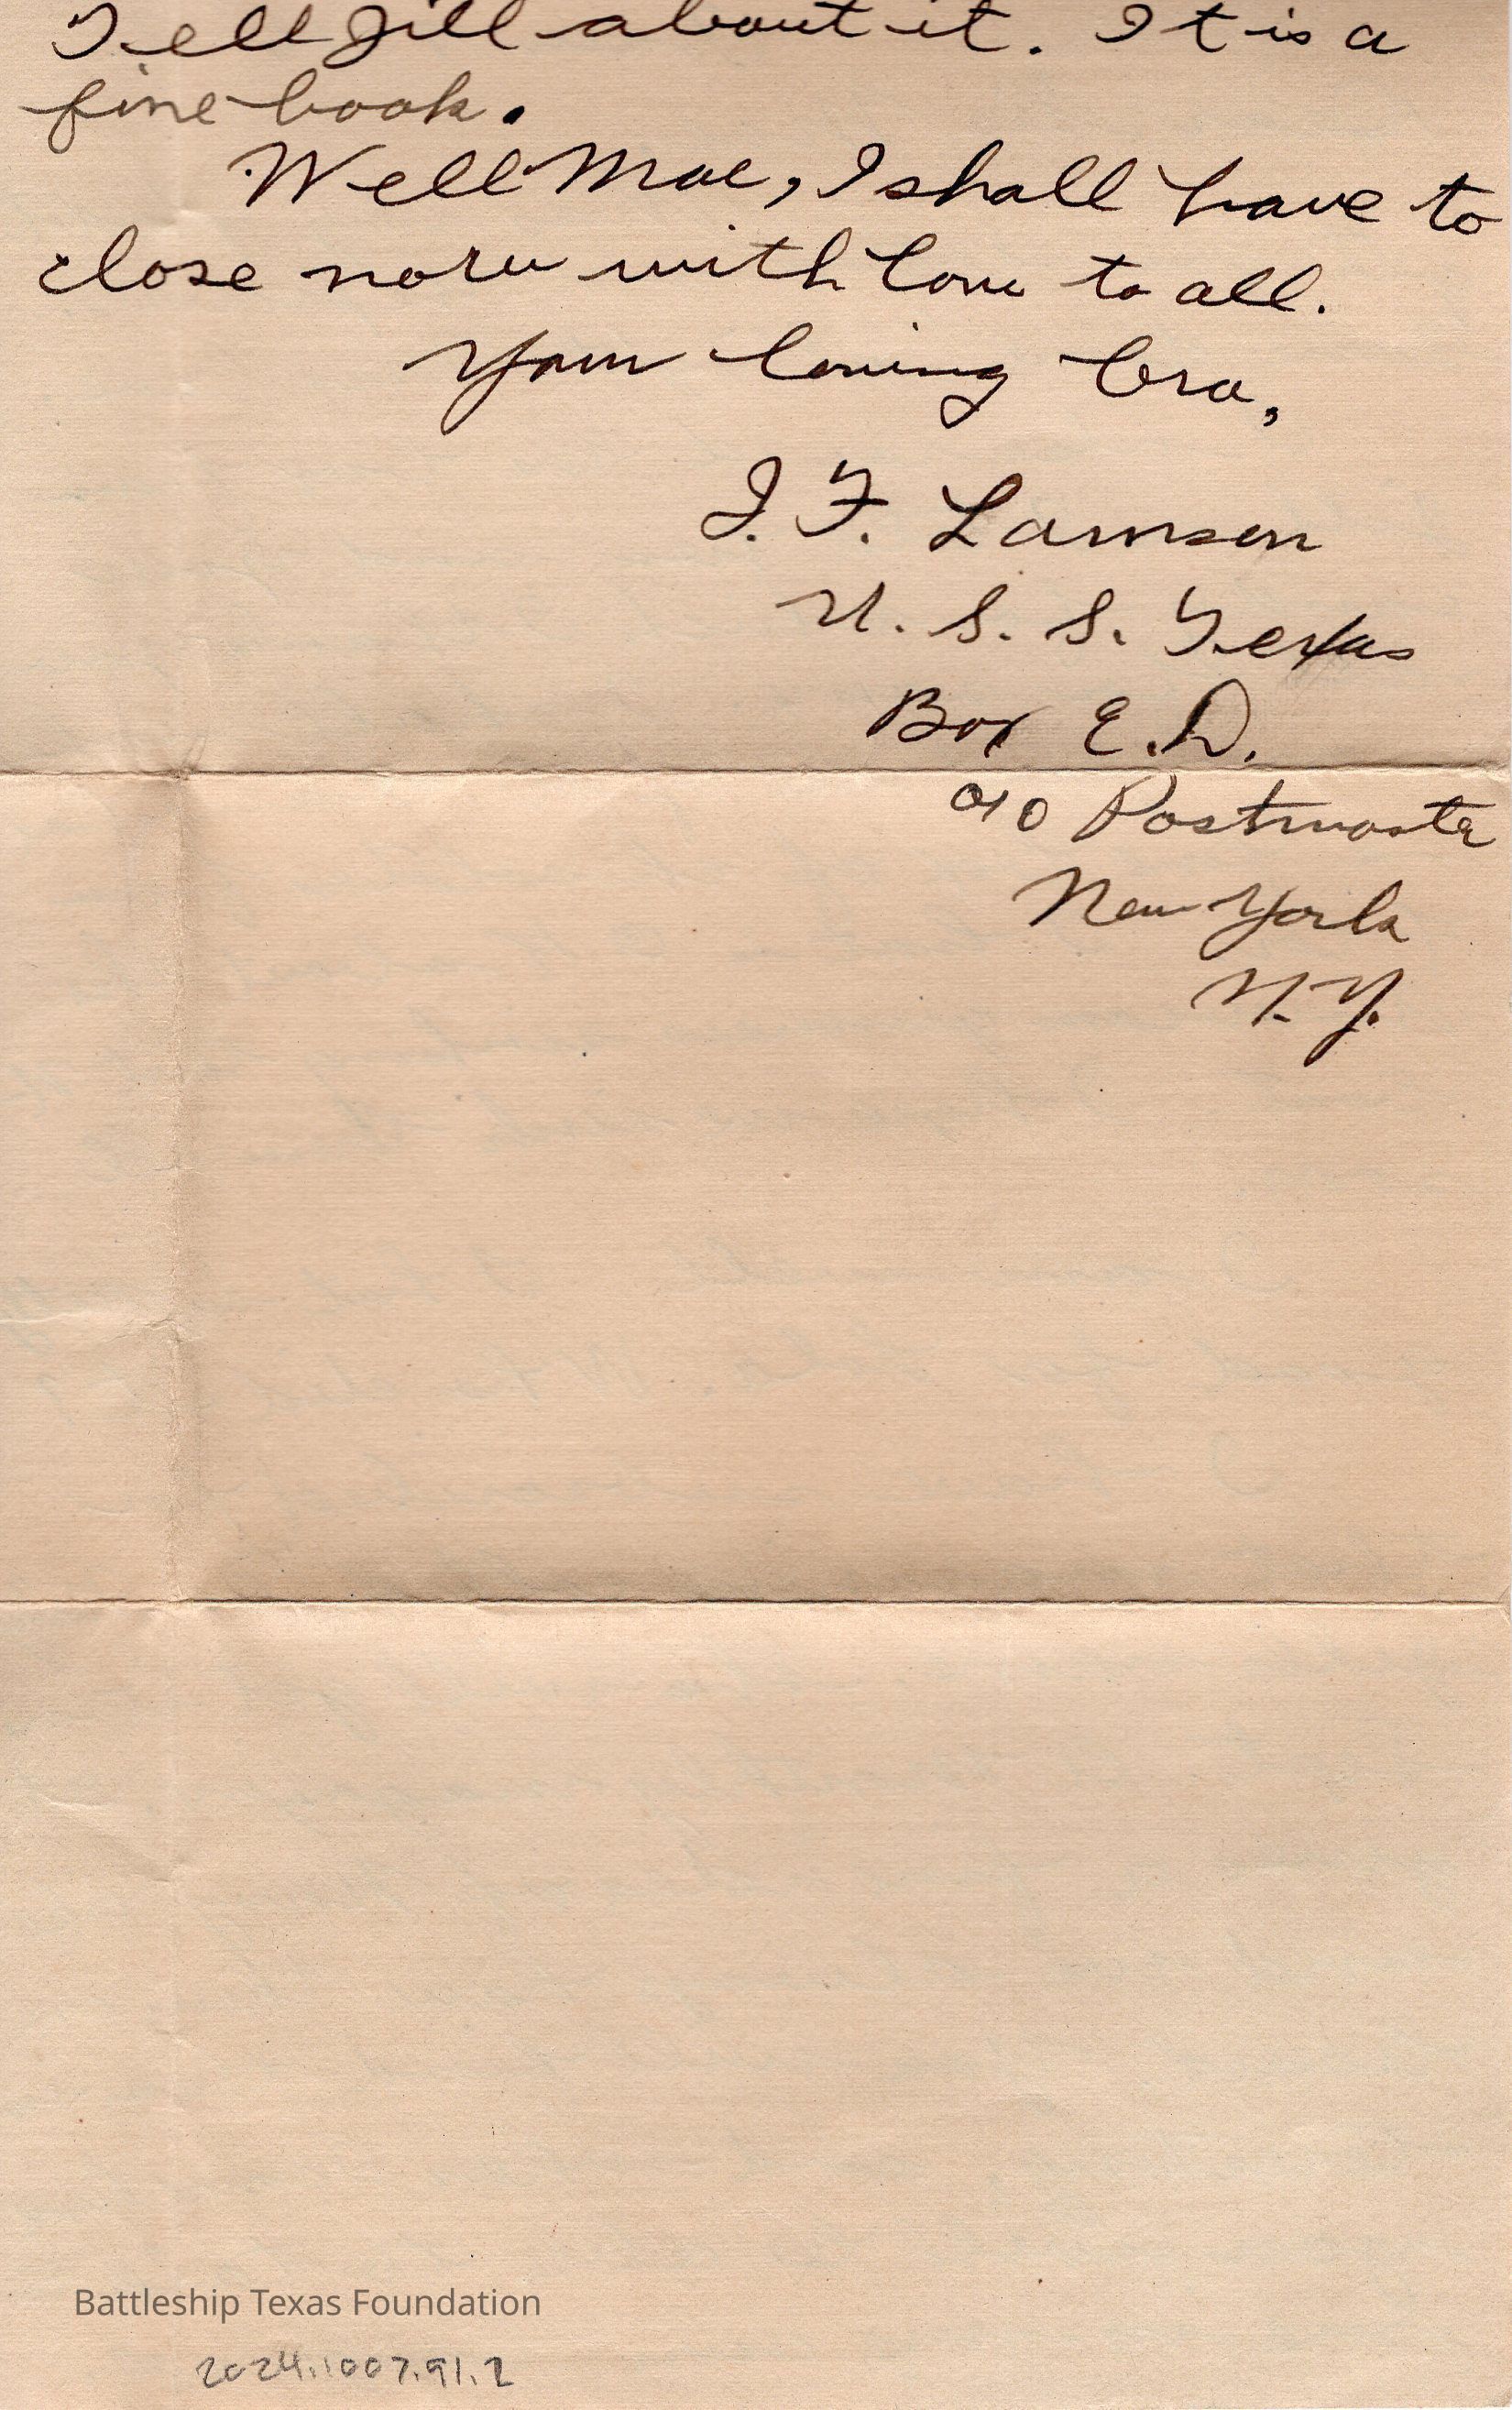 Tell Jill about it. It is a
fine book.
Well Mae, I shall have to
close now with love to all.
Your loving bro,
J. F. Lamson
U. S. S. Texas
Box E.D.
c/o Postmaster
New York
N.Y.
Battleship Texas Foundation
2024.1007.91.2